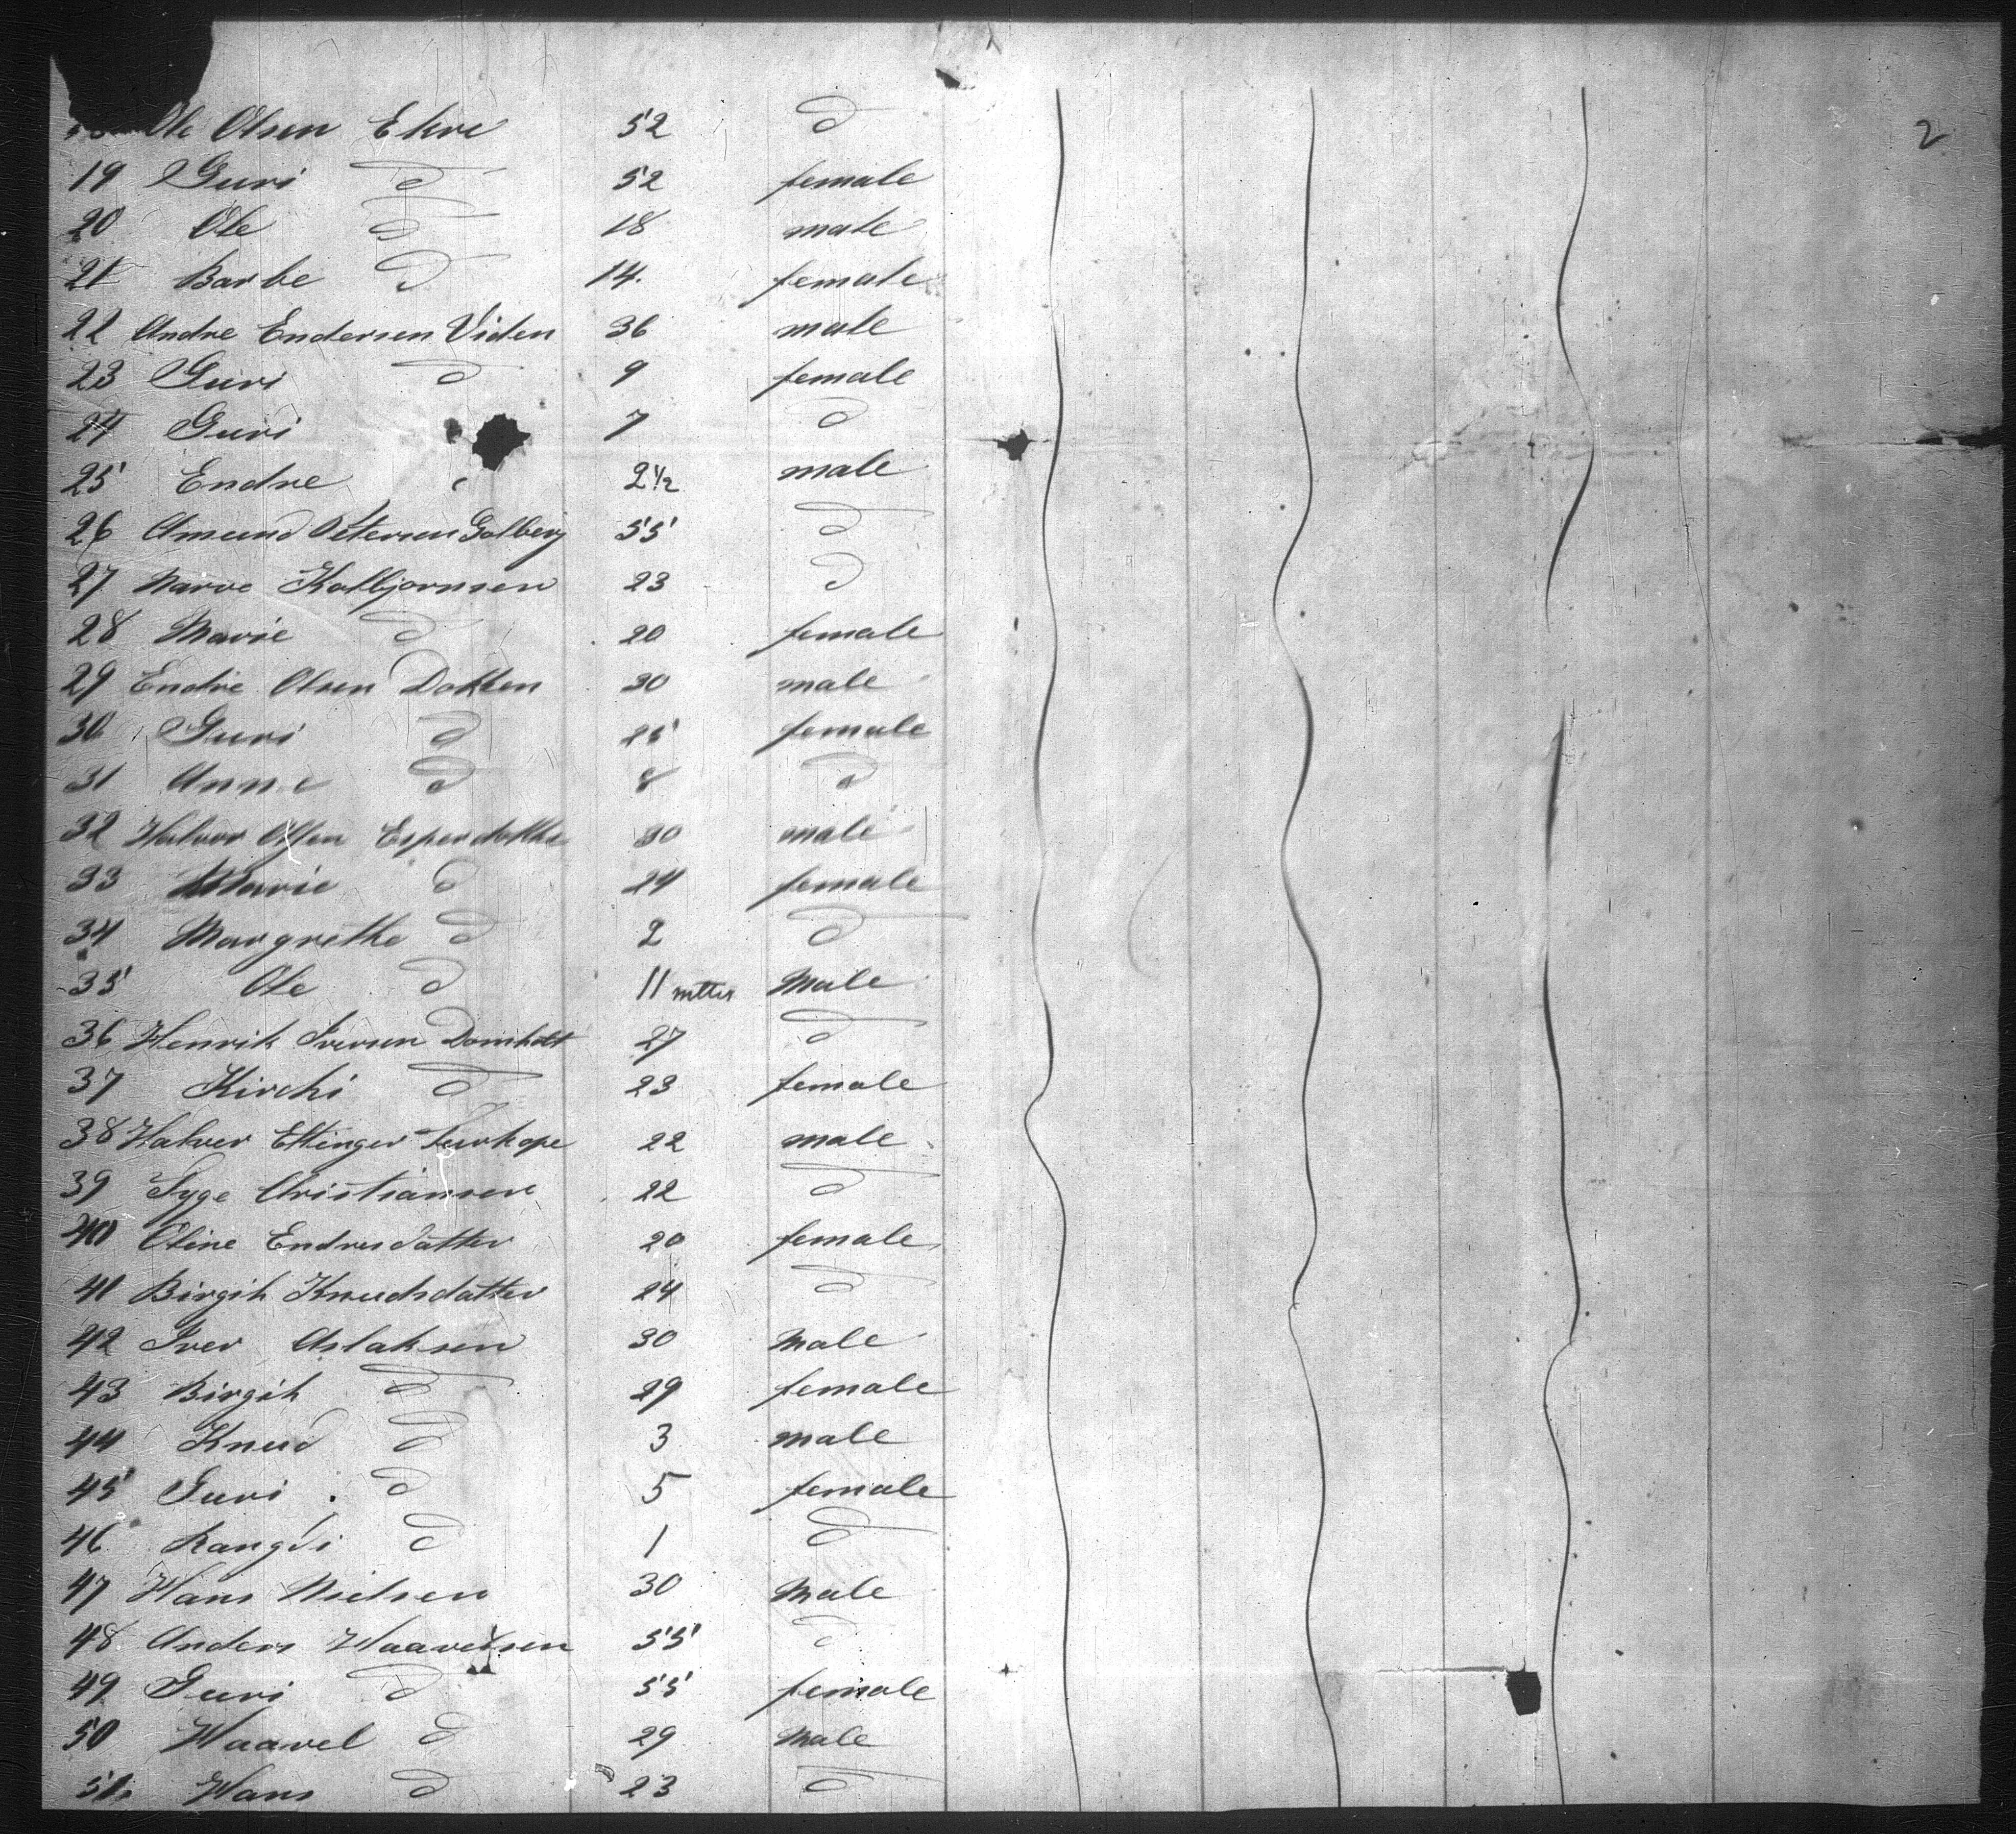 2
Ole Olsen Ekre 52 d
19 Guri d 52 female
20 Ole d 18 male
21 Barbe d 14. female
22 Andre Endersen Viden 36 male
23 Guri d 9 female
24 Guri 7 d
25 Endre 2 1/2 male
26 Amund Petersen Golberg 55 d
27 Narve Kolbjornsen 23 d
28 Marie d 20 female
29 Endre Olsen Dokken 30 male
30 Guri d 25 female
31 Anne d 8 d
32 Halvor Olsen 30 male
33 Marie d 24 female
34 Margrethe d 2 d
35 Ole d 11 Male
36 Henrik Iversen Domholt 27 d
37 Kirchi d 23 female
38 Halver 22 male
39 Syge Christiansen 22 d
40 Oline Endresdatter 20 female
41 Birgih Knudsdatter 24 d
42 Iver Aslaksen 30 Male
43 Birgih d 29 female
44 Knud d 3 male
45 Guri d 5 female
46 Rangdi d 1 d
47 Hans Nielsen 30 Male
48 Anders Haavelsen 55 d
49 Guri d 55 female
50 Haavel d 29 Male
51 Hans d 23 d